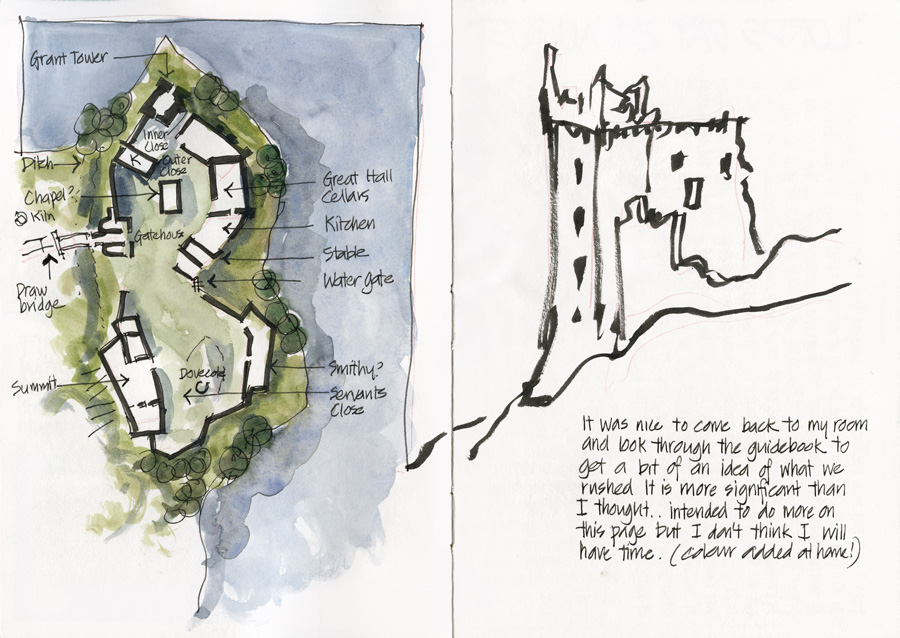 Grant Tower
Inner
Close
K
Outer
Close
Ditch
Chapel?
Kiln
Gatehouse
Draw
bridge
Great Hall
Cellars
Kitchen
Stable
Water gate
Summit
Dovecote
Smithy?
Servants
Close
It was nice to come back to my room
and look through the guidebook to
get a bit of an idea of what we
rushed It is more significant than
I thought.. intended to do more on
this page but I don't think I will
have time. (colour added at home!)